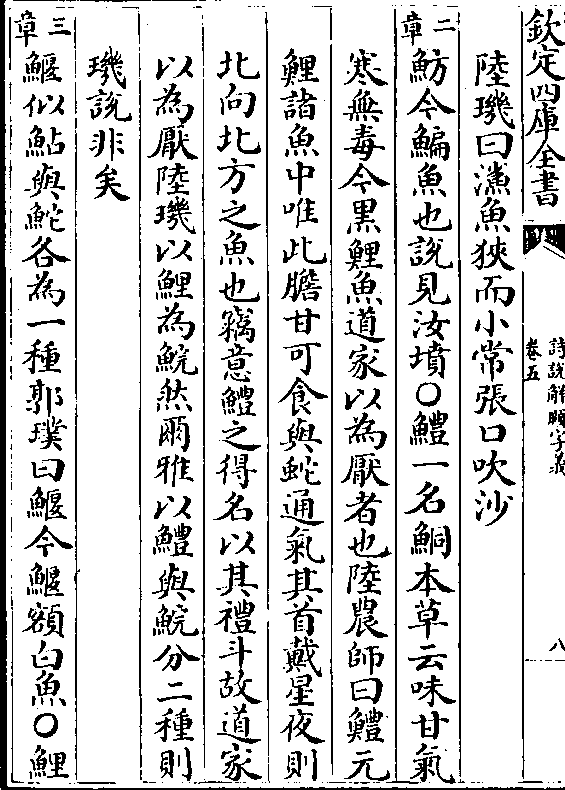 欽定四庫全書
詩說解頤字義
卷五
八
陸璣曰鯊魚狹而小常張口吹沙
二章
魴今鯿魚也說見汝墳○鱧一名鮦本草云味甘氣
寒無毒今黒鯉魚道家以為厭者也陸農師曰鱧元
鯉諸魚中唯此膽甘可食與蛇通氣其首戴星夜則
北向北方之魚也竊意鱧之得名以其禮斗故道家
以為厭陸璣以鯉為鯇然爾雅以鱧與鯇分二種則
璣說非矣
三章
鰋似鮎與鮀各為一種郭璞曰鰋今鰋額白魚○鯉